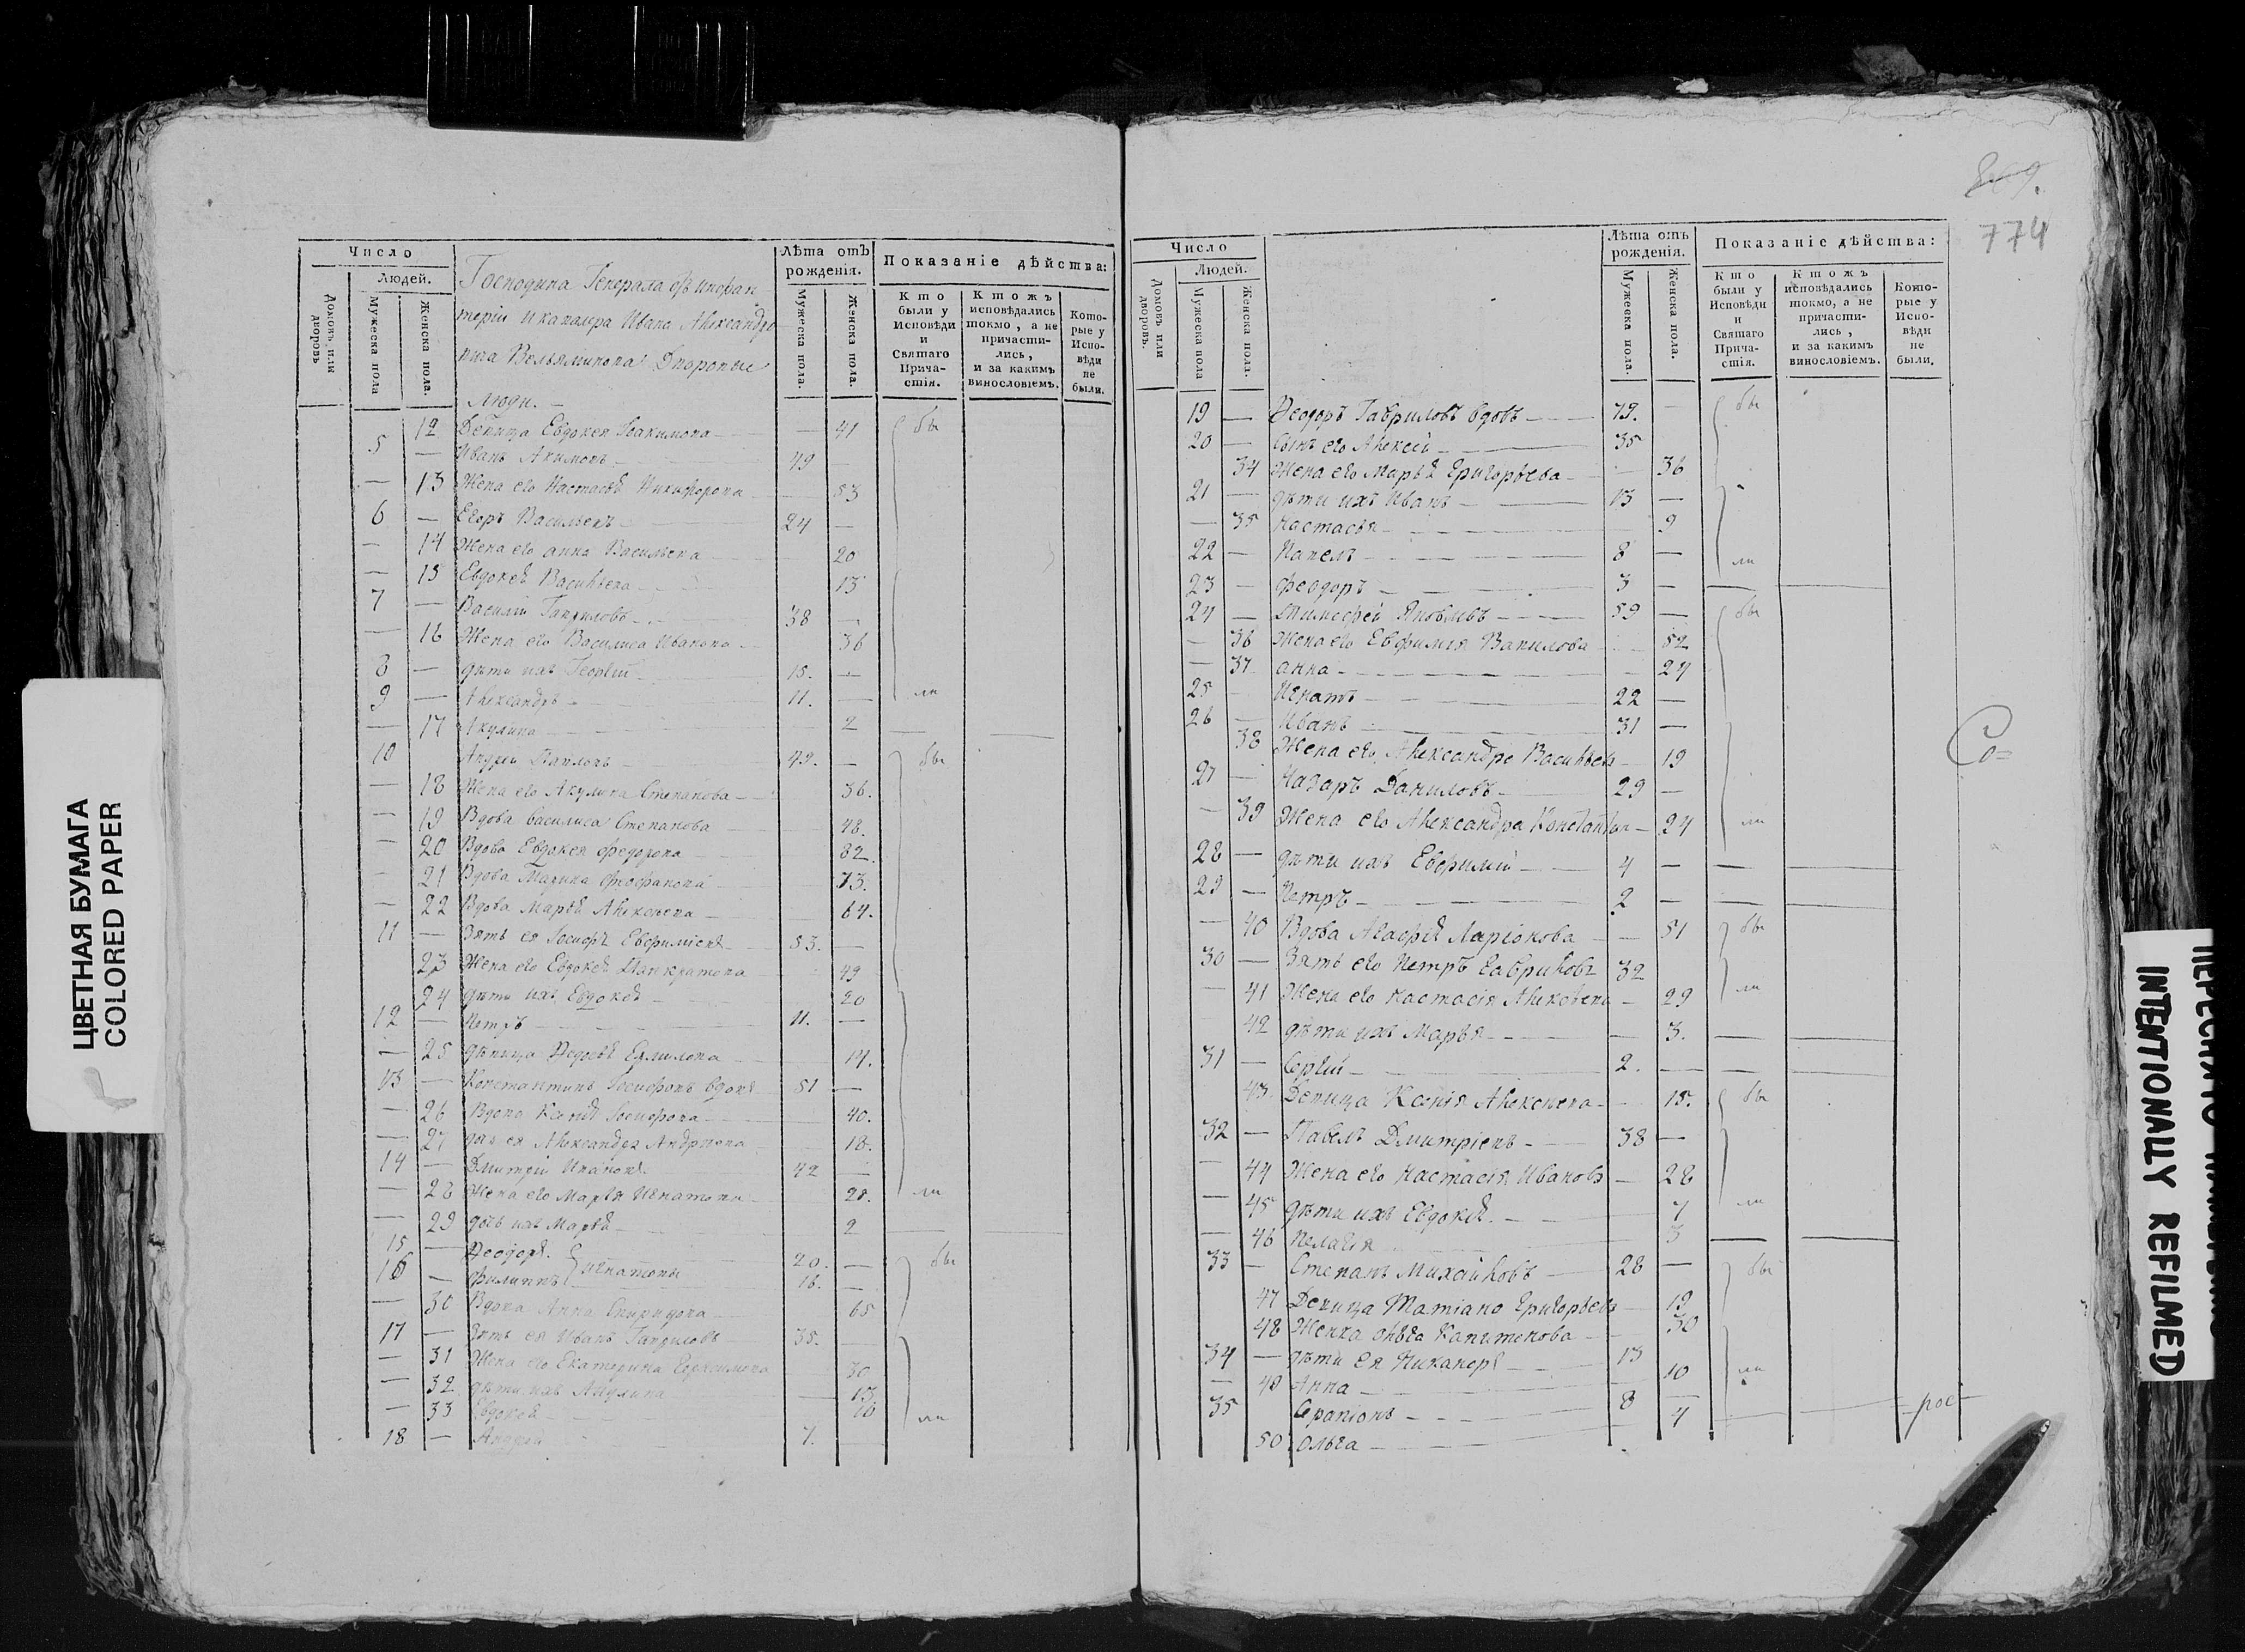 ЦВЕТНАЯ БУМАГА
COLORED PAPER
Число
Людей.
Домовъ или дворовъ
Мужеска пола
Женска пола.
Господина Генерала отъ инфан
теріи и кавалера Ивана Александро
вича Вельяминова Дворовые
люди. —
Лѣта отъ рожденія.
Мужеска пола.
Женска пола.
Показаніе дѣйства:
Кто были у Исповѣди и Святаго Прича- стія.
Ктожъ исповѣдались токмо, а не причасти- лись, и за какимъ винословіемъ.
Кото- рые у Испо- вѣди не были.
12 Девица Евдокея Іоакимова — 41 бы
5 — Иванъ Акимовъ 49 —
— 13 Жена его Настасья Никифорова 53
6 — Егоръ Васильевъ 24 —
— 14 Жена его анна Васильева 20
— 15 Евдокея Васильева 13
7 — Василій Гавриловъ 38 —
— 16 Жена его Василиса Иванова 36
8 — дѣти ихъ Георгій 15. —
9 — Александръ 11. — ли
— 17 Акулина 2 —
10 Андрей Павловъ 49. — бы
— 18 Жена его Акулина Степанова 36.
— 19 Вдова Василиса Степанова 48.
— 20 Вдова Евдокея Федорова 82.
— 21 Вдова Марина Феофанова 73.
— 22 Вдова Марья Алексеева 64.
11 — Зять ея Іосифъ Евфиміевъ 53. —
23 Жена его Евдокея Панкратова 49
24 дѣти ихъ Евдокея 20
12 — Петръ 11. —
— 25 дѣвица Федосья Ермилова 14.
13 — Константинъ Іосифовъ вдовъ 51 —
— 26 Вдова Ксенія Іосифова 40.
— 27 дочь ея Александра Андреева 18.
14 — Дмитрій Ивановъ 42 —
— 28 Жена его Марья Игнатова 28. ли
— 29 дочь ихъ Марья 2
15 — Феодоръ 20. — бы
16 — Филиппъ Игнатовы 16. —
— 30 Вдова Анна Спиридова 65
17 — Зять ея Иванъ Гавриловъ 35.
— 31 Жена его Екатерина 30
— 32 дѣти ихъ Акулина 13
— 33 Евдокея 10 ли
18 — Андрей 7.
869.
774
Число
Людей.
Домовъ или дворовъ.
Мужеска пола
Женска пола.
Лѣта отъ рожденія.
Мужеска пола.
Женска пола.
Показаніе дѣйства:
Кто были у Исповѣди и Святаго Прича- стія.
Ктожъ исповѣдались токмо, а не причасти- лись, и за какимъ винословіемъ.
Кото- рые у Испо- вѣди не были.
19 — Феодоръ Гавриловъ вдовъ — 79. — бы
20 — Сынъ его Алексей 35
34 Жена его Марья Григорьева 36
21 — дѣти ихъ Иванъ — 13 —
— 35 Настасья 9
22 — Павелъ 8 — ли
23 — Феодоръ 3 —
24 — Тимофей Яковлевъ 59 — бы
— 36 Жена его Евфимія Вавилова 52
— 37 анна — 24
25 Игнатъ 22 —
26 — Иванъ 31 —
38 Жена его Александра Васильева 19
27 — Назаръ Даниловъ 29 —
— 39 Жена его Александра Константин — 24 ли
28 — дѣти ихъ Евфимій 4 — —
29 — Петръ — 2 — —
— 40 Вдова Агафія Ларіонова — 51 бы
30 — Зять его Петръ Гавриловъ 32
— 41 Жена его Настасія Алексеева — 29 ли
42 дѣти ихъ Марья — 3. —
31 — Сергій — 2. — —
43 Девица Ксенія Алексеева — 18. бы
32 — Павелъ Дмитріевъ — 38 —
— 44 Жена его Настасія Иванова — 28
— 45 дѣти ихъ Евдокея. — 7 ли
— 46 Пелагея 3 —
33 — Степанъ Михайловъ 28 — бы
47 Девица Татіана Григорьева 19
48 Женка ольга Капитонова 30
34 — дѣти ея Никаноръ 13
— 48 Анна 10 ли
35 Серапіонъ 8 —
50 Ольга — 4
рос
Со=
ПЕРЕСНЯТО НАМЕРЕННО
INTENTIONALLY REFILMED